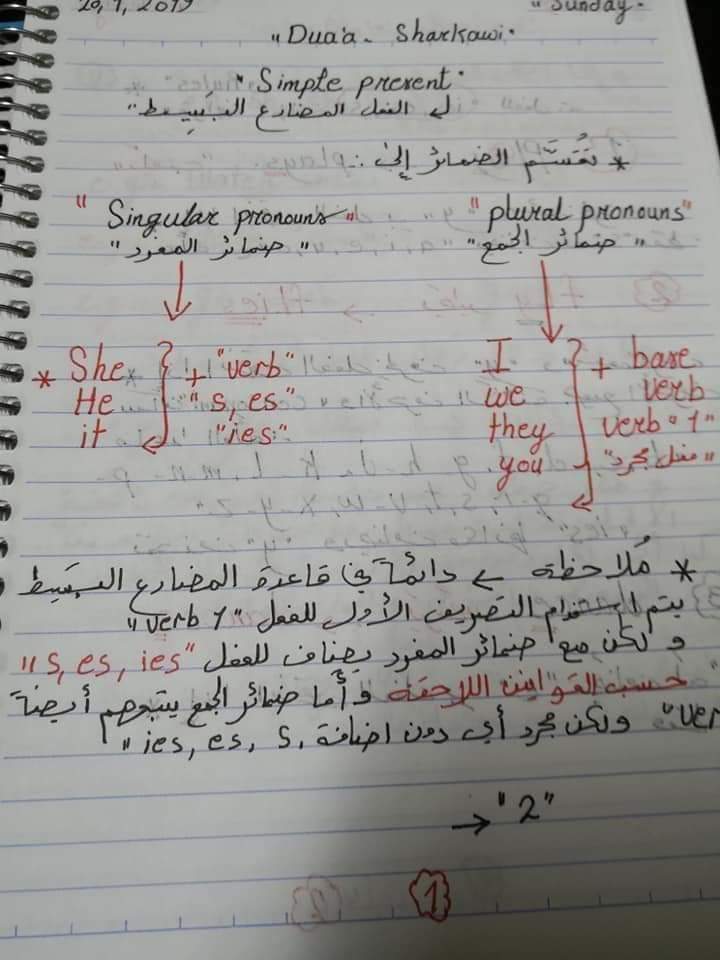 20, 1, 2019 "Sunday.
"Dua'a. Sharkawi.
"Simple present"
لـ الفعل المضارع البَسِيط"
* تُقسَّم الضمائر إلىٰ :
"Singular pronouns" "plural pronouns"
"ضمائر المفرد" "ضمائر الجمع"
* She + "verb" I + base
He "s, es" we verb
it "ies" they verb "1"
you "فعل مجرد"
* مُلاحظة دائمًا في قاعدة المضارع البَسِيط
يتم استخدام التصريف الأول للفعل "verb 1"
و لكن مع ضمائر المفرد يضاف للفعل "s, es, ies"
حسب القوانين اللاحقة و أما ضمائر الجمع يتبعهم أيضًا
"ver ولكن مجرد أي دون اضافة s, es, ies"
→ "2"
1